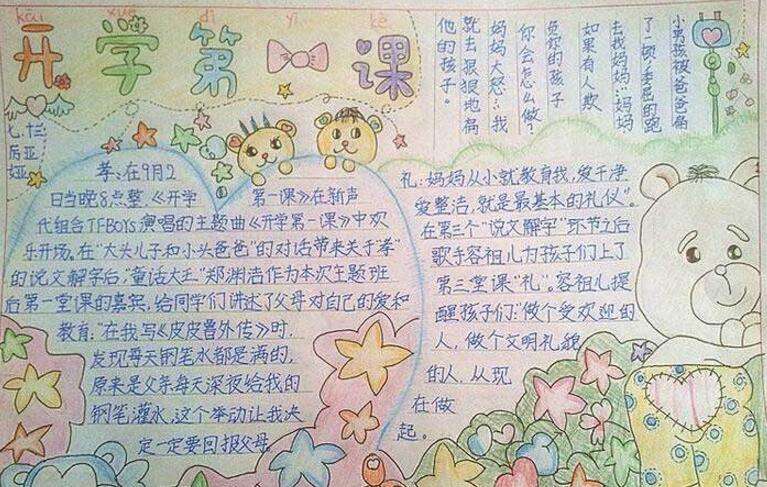 kai xue di yi ke
开学第 课
小男孩被爸爸扁
了一顿,委屈的跑
去找妈妈:"妈妈
如果有人欺
负你的孩子
你会怎么做?
妈妈大怒:"我
就去狠狠地扁
他的孩子。
孝:在9月2
日当晚8点整,《开学第一课》在新声
代组合TFBOYS演唱的主题曲《开学第一课》中欢
乐开场,在"大头儿子和小头爸爸"的对话带来关于"孝"
的说文解字后,"童话大王"郑渊洁作为本次主题班
后第一堂课的嘉宾,给同学们讲述了父母对自己的爱和
教育:"在我写《皮皮鲁外传》时,
发现每天钢笔水都是满的,
原来是父亲每天深夜给我的
钢笔灌水,这个举动让我决
定一定要回报父母。
礼:妈妈从小就教育我,爱干净
爱整洁,就是最基本的礼仪"。
在第三个"说文解字"环节之后
歌手容祖儿为孩子们上了
第三堂课"礼"。容祖儿提
醒孩子们:"做个受欢迎的
人,做个文明礼貌
的人,从现
在做
起。